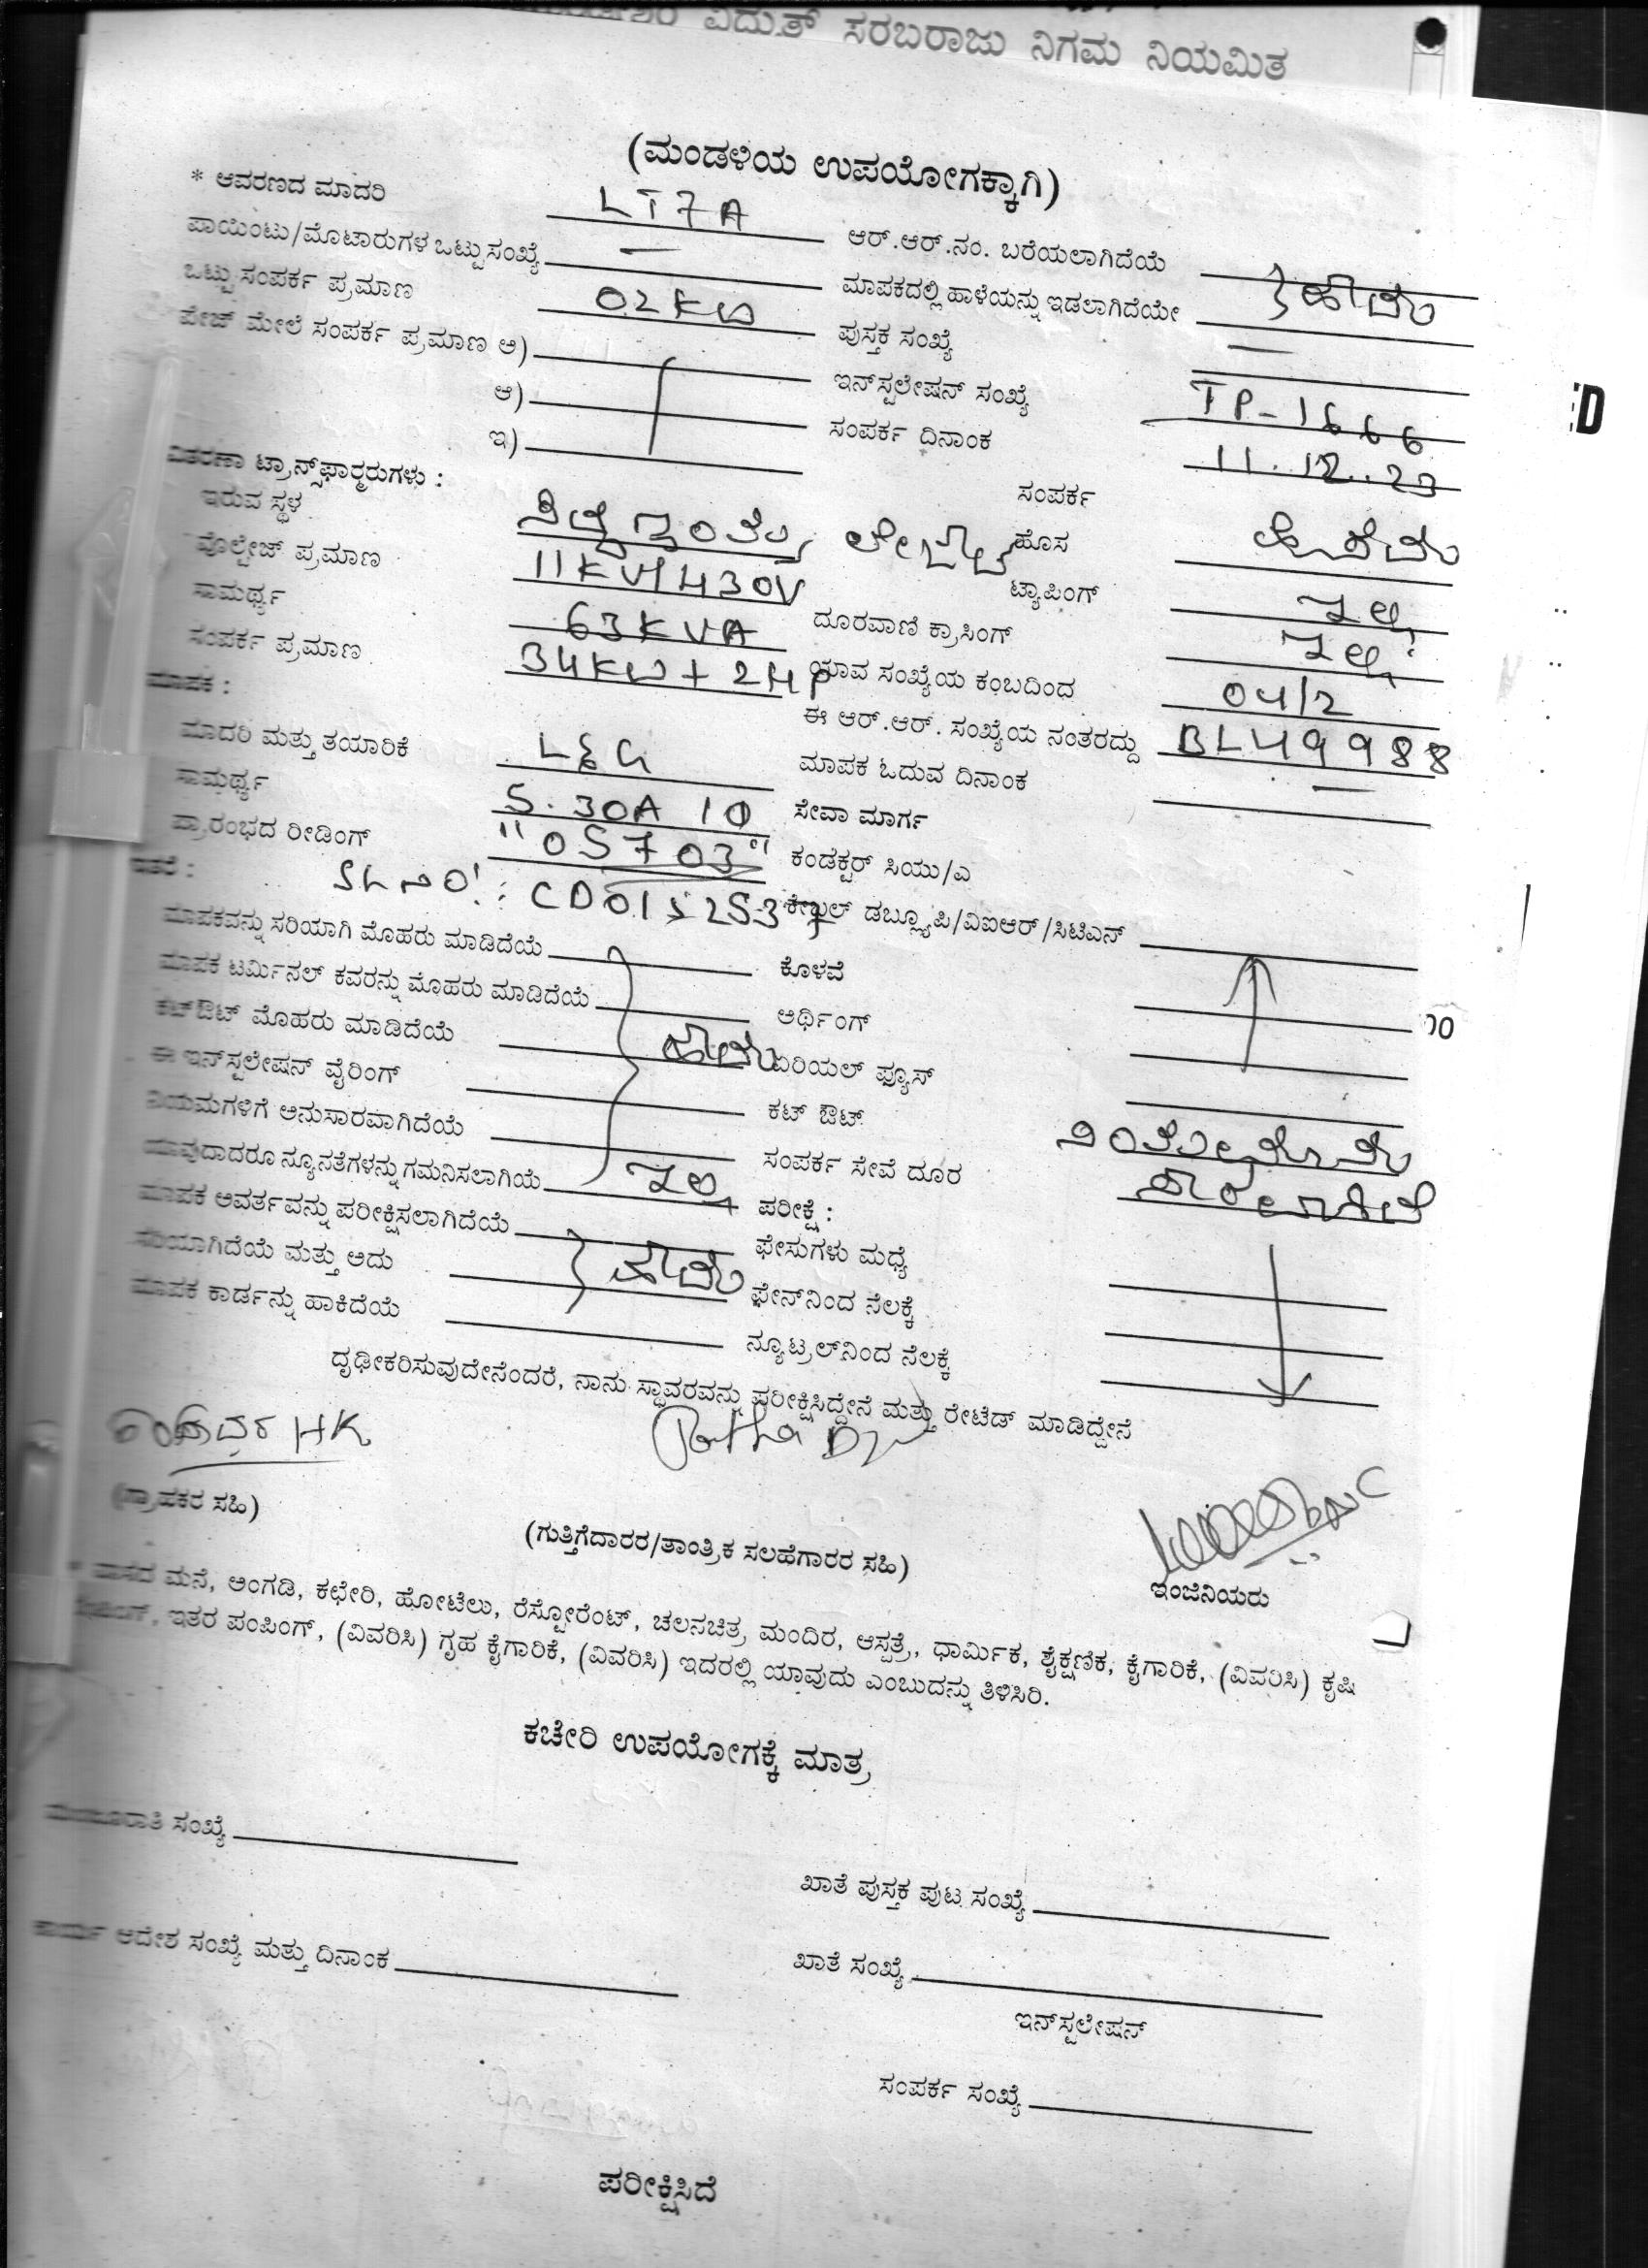 ವಿದ್ಯುತ್ ಸರಬರಾಜು ನಿಗಮ ನಿಯಮಿತ
(ಮಂಡಳಿಯ ಉಪಯೋಗಕ್ಕಾಗಿ)
* ಆವರಣದ ಮಾದರಿ LT7A ಆರ್.ಆರ್.ನಂ. ಬರೆಯಲಾಗಿದೆಯೆ
ಪಾಯಿಂಟು/ಮೊಟಾರುಗಳ ಒಟ್ಟು ಸಂಖ್ಯೆ — ಮಾಪಕದಲ್ಲಿ ಹಾಳೆಯನ್ನು ಇಡಲಾಗಿದೆಯೇ } ಹೌದು
ಒಟ್ಟು ಸಂಪರ್ಕ ಪ್ರಮಾಣ 02KW ಪುಸ್ತಕ ಸಂಖ್ಯೆ —
ಪೇಜ್ ಮೇಲೆ ಸಂಪರ್ಕ ಪ್ರಮಾಣ ಅ) ಇನ್‌ಸ್ಟಲೇಷನ್ ಸಂಖ್ಯೆ TP-1666
ಆ) ಸಂಪರ್ಕ ದಿನಾಂಕ 11.12.23
ಇ)
ವಿತರಣಾ ಟ್ರಾನ್ಸ್‌ಫಾರ್ಮರುಗಳು : ಸಂಪರ್ಕ
ಇರುವ ಸ್ಥಳ ಲೇಔಟ್ ಹೊಸ
ವೊಲ್ಟೇಜ್ ಪ್ರಮಾಣ 11KV/430V ಟ್ಯಾಪಿಂಗ್ ಇಲ್ಲ
ಸಾಮರ್ಥ್ಯ 63KVA ದೂರವಾಣಿ ಕ್ರಾಸಿಂಗ್ ಇಲ್ಲ
ಸಂಪರ್ಕ ಪ್ರಮಾಣ 34KW+2HP ಯಾವ ಸಂಖ್ಯೆಯ ಕಂಬದಿಂದ 04/2
ಮಾಪಕ : ಈ ಆರ್.ಆರ್. ಸಂಖ್ಯೆಯ ನಂತರದ್ದು BL49988
ಮಾದರಿ ಮತ್ತು ತಯಾರಿಕೆ L&G ಮಾಪಕ ಓದುವ ದಿನಾಂಕ —
ಸಾಮರ್ಥ್ಯ 5.30A 1Φ ಸೇವಾ ಮಾರ್ಗ
ಪ್ರಾರಂಭದ ರೀಡಿಂಗ್ "05703" ಕಂಡಕ್ಟರ್ ಸಿಯು/ಎ
ಇತರೆ : SL NO: CD0152537 ಕೇಬಲ್ ಡಬ್ಲ್ಯೂಪಿ/ವಿಐಆರ್/ಸಿಟಿಎಸ್
ಮಾಪಕವನ್ನು ಸರಿಯಾಗಿ ಮೊಹರು ಮಾಡಿದೆಯೆ ಕೊಳವೆ
ಮಾಪಕ ಟರ್ಮಿನಲ್ ಕವರನ್ನು ಮೊಹರು ಮಾಡಿದೆಯೆ ಅರ್ಥಿಂಗ್
ಕಟ್‌ಔಟ್ ಮೊಹರು ಮಾಡಿದೆಯೆ ಹೌದು ಏರಿಯಲ್ ಫ್ಯೂಸ್
ಈ ಇನ್‌ಸ್ಟಲೇಷನ್ ವೈರಿಂಗ್ ಕಟ್ ಔಟ್
ನಿಯಮಗಳಿಗೆ ಅನುಸಾರವಾಗಿದೆಯೆ ಸಂಪರ್ಕ ಸೇವೆ ದೂರ
ಯಾವುದಾದರೂ ನ್ಯೂನತೆಗಳನ್ನು ಗಮನಿಸಲಾಗಿಯೆ ಇಲ್ಲ ಪರೀಕ್ಷೆ :
ಮಾಪಕ ಅವರ್ತವನ್ನು ಪರೀಕ್ಷಿಸಲಾಗಿದೆಯೆ ಫೇಸುಗಳು ಮಧ್ಯೆ
ಸರಿಯಾಗಿದೆಯೆ ಮತ್ತು ಅದು } ಹೌದು ಫೇಸ್‌ನಿಂದ ನೆಲಕ್ಕೆ
ಮಾಪಕ ಕಾರ್ಡನ್ನು ಹಾಕಿದೆಯೆ ನ್ಯೂಟ್ರಲ್‌ನಿಂದ ನೆಲಕ್ಕೆ
ದೃಢೀಕರಿಸುವುದೇನೆಂದರೆ, ನಾನು ಸ್ಥಾವರವನ್ನು ಪರೀಕ್ಷಿಸಿದ್ದೇನೆ ಮತ್ತು ರೇಟೆಡ್ ಮಾಡಿದ್ದೇನೆ
HK
(ಗ್ರಾಹಕರ ಸಹಿ)
(ಗುತ್ತಿಗೆದಾರರ/ತಾಂತ್ರಿಕ ಸಲಹೆಗಾರರ ಸಹಿ)
ಇಂಜಿನಿಯರು
* ವಾಸದ ಮನೆ, ಅಂಗಡಿ, ಕಛೇರಿ, ಹೋಟೆಲು, ರೆಸ್ಟೋರೆಂಟ್, ಚಲನಚಿತ್ರ ಮಂದಿರ, ಆಸ್ಪತ್ರೆ, ಧಾರ್ಮಿಕ, ಶೈಕ್ಷಣಿಕ, ಕೈಗಾರಿಕೆ, (ವಿವರಿಸಿ) ಕೃಷಿ
ಪಂಪಿಂಗ್, ಇತರ ಪಂಪಿಂಗ್, (ವಿವರಿಸಿ) ಗೃಹ ಕೈಗಾರಿಕೆ, (ವಿವರಿಸಿ) ಇದರಲ್ಲಿ ಯಾವುದು ಎಂಬುದನ್ನು ತಿಳಿಸಿರಿ.
ಕಚೇರಿ ಉಪಯೋಗಕ್ಕೆ ಮಾತ್ರ
ಮಂಜೂರಾತಿ ಸಂಖ್ಯೆ
ಖಾತೆ ಪುಸ್ತಕ ಪುಟ ಸಂಖ್ಯೆ
ಕಾರ್ಯ ಆದೇಶ ಸಂಖ್ಯೆ ಮತ್ತು ದಿನಾಂಕ
ಖಾತೆ ಸಂಖ್ಯೆ
ಇನ್‌ಸ್ಟಲೇಷನ್
ಸಂಪರ್ಕ ಸಂಖ್ಯೆ
ಪರೀಕ್ಷಿಸಿದೆ